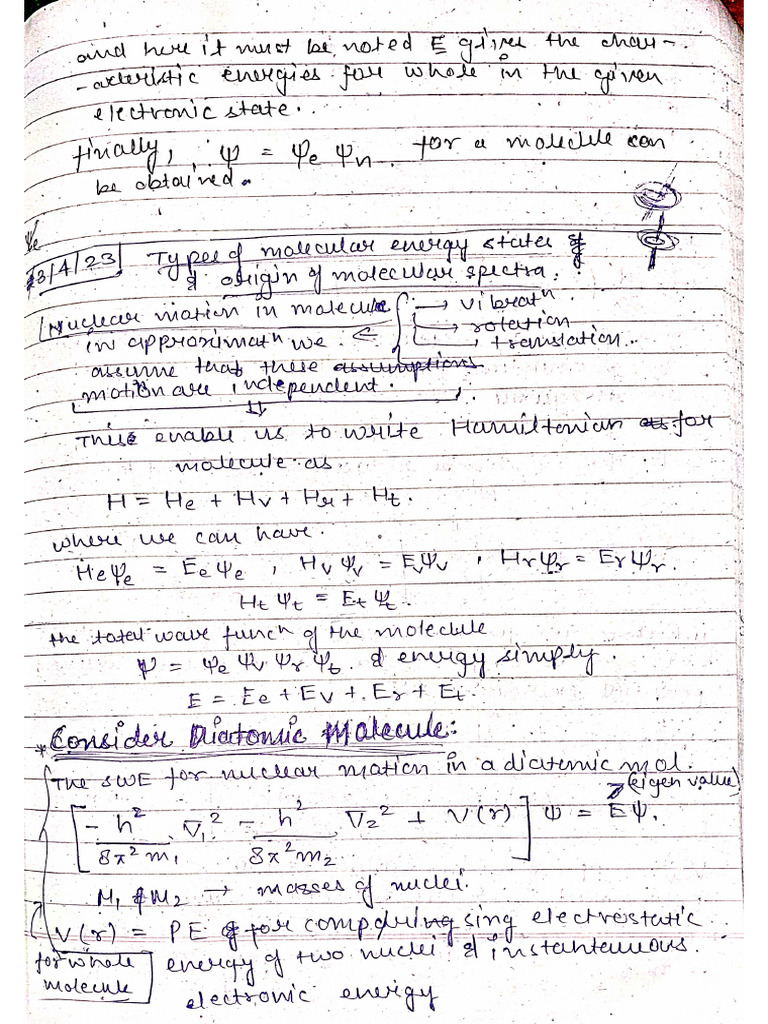 and here it must be noted E gives the char-
-acteristic energies for whole in the given
electronic state.
finally, ψ = ψe ψn. for a molecule can
be obtained.
ψe
13/4/23 Types of molecular energy states &
& origin of molecular spectra.
Nuclear motion in molecule → vibratⁿ
in approximatⁿ we. ⇐ → rotation
→ translation..
assume that these assumptions
motion are independent.
⇓
These enable us to write Hamiltonian as for
molecule as
H = He + Hv + Hr + Ht.
where we can have.
Heψe = Eeψe , Hvψv = Evψv , Hrψr = Erψr.
Htψt = Etψt.
the total wave funcⁿ of the molecule
ψ = ψe ψv ψr ψt & energy simply.
E = Ee + Ev + Er + Et.
* Consider Diatomic Molecule:
The SWE for nuclear motion in a diatomic mol.
(eigen value)
[-h²/8π²m₁ ∇₁² - h²/8π²m₂ ∇₂² + V(r)] ψ = Eψ.
M₁ & M₂ → masses of nuclei.
V(r) = PE for comprising electrostatic
for whole energy of two nuclei & instantenuous.
molecule
electronic energy